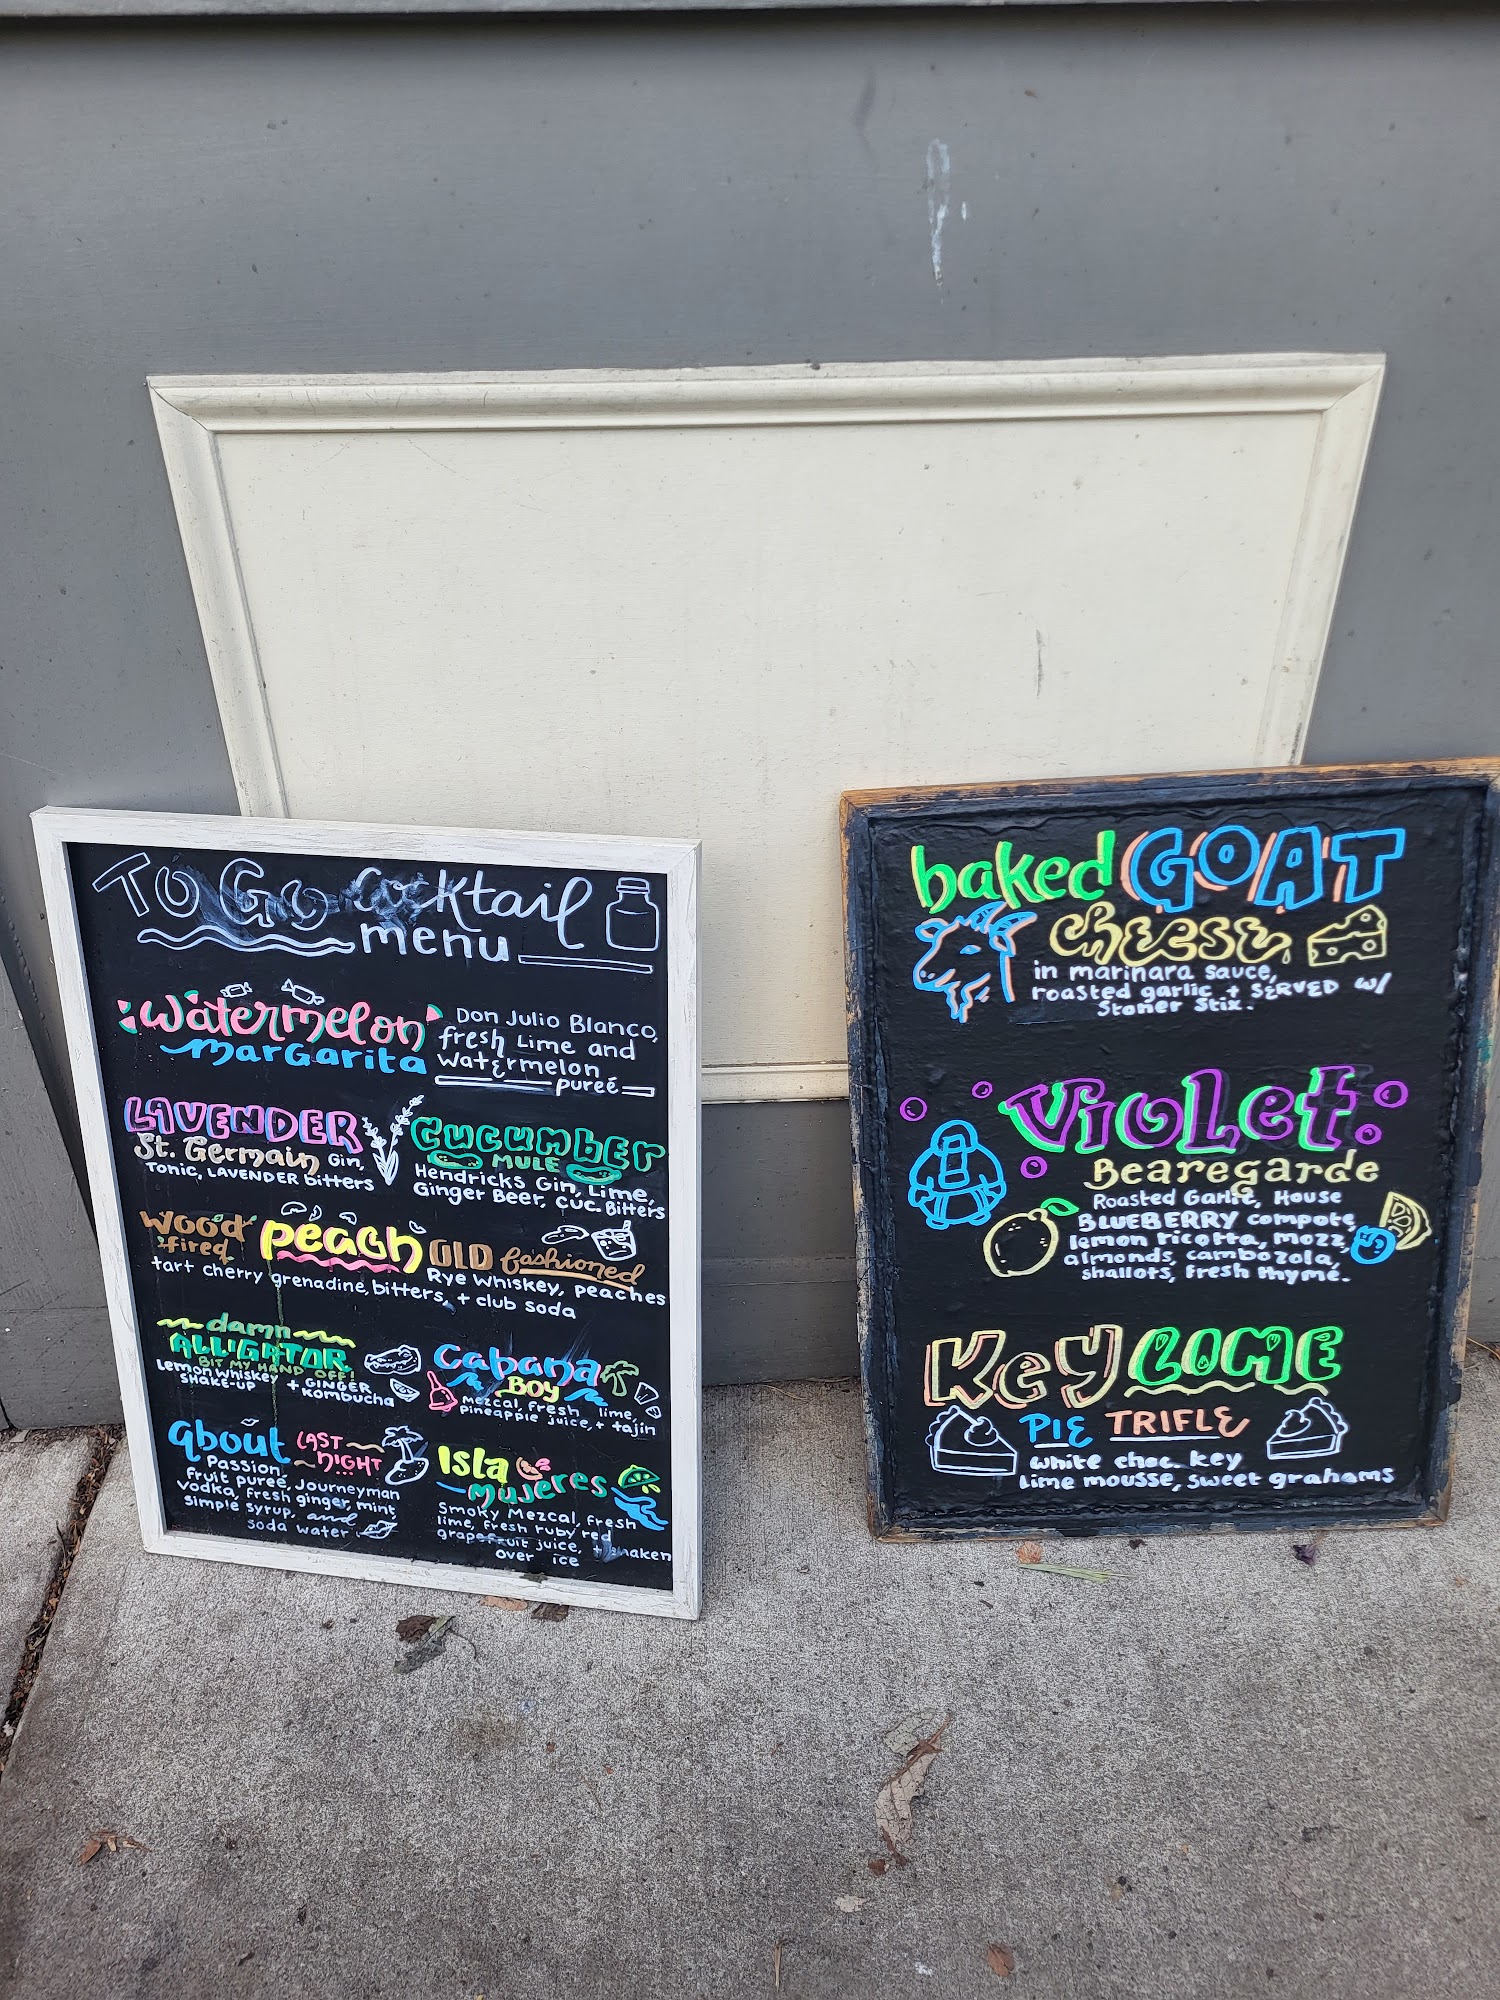 TO GO cocktail
menu
watermelon
margarita
Don Julio Blanco,
fresh Lime and
watermelon
pureé
LAVENDER
St. Germain Gin,
Tonic, LAVENDER bitters
Cucumber
MULE
Hendricks Gin, Lime,
Ginger Beer, cuc. Bitters
wood
fired
peach OLD fashioned
Rye Whiskey, peaches
tart cherry grenadine, bitters, + club soda
damn
ALLIGATOR
BIT MY HAND OFF!
Lemon whiskey + GINGER
SHAKE-UP KOMBUCHA
Cabana
BOY
mezcal, fresh lime,
pineapple juice, + tajin
about LAST
NIGHT...
Passion
fruit pureé, Journeyman
Vodka, fresh ginger, mint,
simple syrup, and
soda water
Isla
mujeres
Smoky Mezcal, fresh
lime, fresh ruby red
grapefruit juice, + shaken
over ice
baked GOAT
cheese
in marinara sauce,
roasted garlic + SERVED w/
Stoner Stix.
Violet
Bearegarde
Roasted Garlic, House
BLUEBERRY compote,
lemon ricotta, mozz,
almonds, cambozola,
shallots, fresh thyme.
Key LIME
PIE TRIFLE
white choc. key
lime mousse, sweet grahams